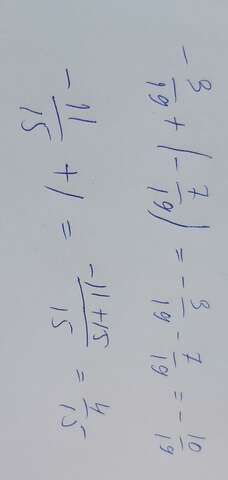 -3/19 + (-7/19) = -3/19 - 7/19 = -10/19
-11/15 + 1 = -11+15/15 = 4/15